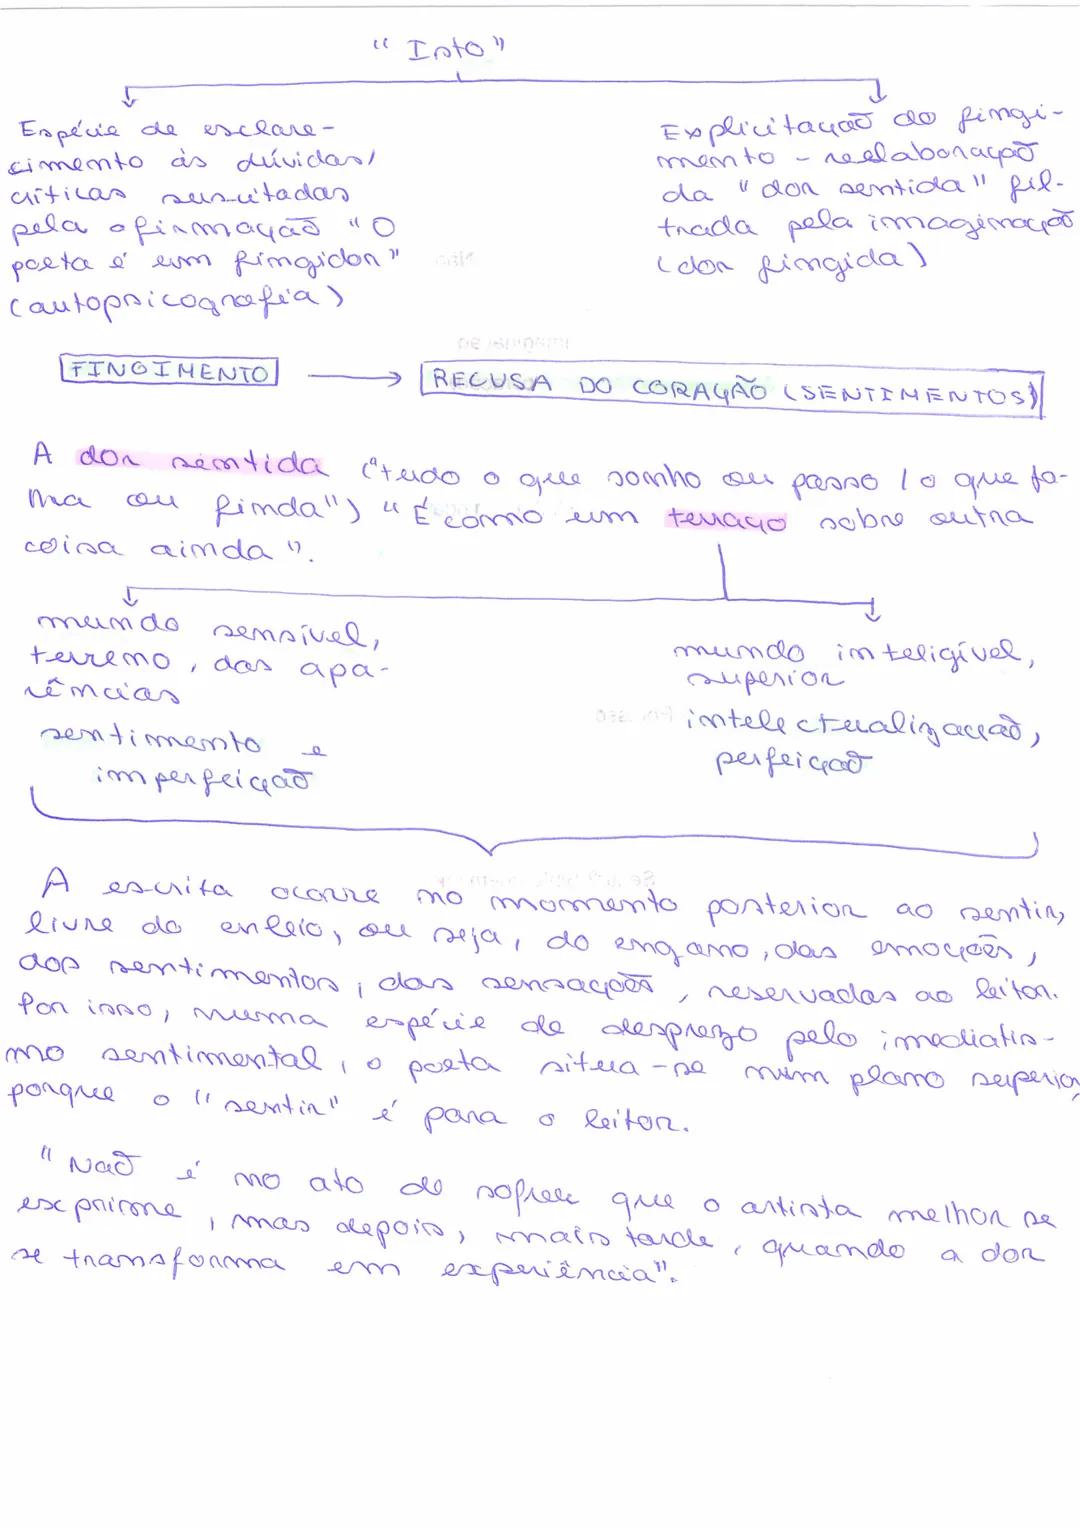 "Isto"
Espécie de esclare-
cimento às dúvidas/
críticas suscitadas
pela afirmação "O
poeta é um fingidor"
(autopsicografia)
Explicitação do fingi-
mento - reelaboração
da "dor sentida" fil-
trada pela imaginação
(dor fingida)
FINGIMENTO → RECUSA DO CORAÇÃO (SENTIMENTOS)
A dor sentida ("tudo o que sonho ou passo / o que fa-
lha ou finda") "É como um terraço sobre outra
coisa ainda".
mundo sensível,
terreno, das apa-
rências
sentimento e
imperfeição
mundo inteligível,
superior
intelectualização,
perfeição
A escrita ocorre no momento posterior ao sentir,
livre do enleio, ou seja, do engano, das emoções,
dos sentimentos, das sensações, reservadas ao leitor.
Por isso, numa espécie de desprezo pelo imediatis-
mo sentimental, o poeta situa-se num plano superior,
porque o "sentir" é para o leitor.
"Não é no ato de sofrer que o artista melhor se
exprime, mas depois, mais tarde, quando a dor
se transforma em experiência".